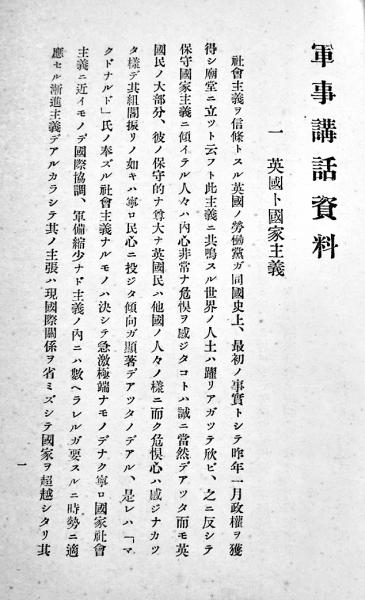 軍事講話資料
一 英國ト國家主義
社會主義ヲ信條トスル英國ノ勞働黨ガ同國史上、最初ノ事實トシテ昨年一月政權ヲ獲
得シ廟堂ニ立ツト云フ此主義ニ共鳴スル世界ノ人士ハ躍リアガツテ欣ビ、之ニ反シテ
保守國家主義ニ傾イテル人々ハ內心非常ナ危惧ヲ感ジタコトハ誠ニ當然デアツタ而モ英
國民ノ大部分、彼ノ保守的ナ尊大ナ英國民ハ他國ノ人々ノ樣ニ而ク危惧心ハ感ジナカツ
タ樣デ其組閣振リノ如キハ寧ロ民心ニ投ジタ傾向ガ顯著デアツタノデアル、是レハ「マ
クドナルド」氏ノ奉ズル社會主義ナルモノハ決シテ急激極端ナモノデナク寧ロ國家社會
主義ニ近イモノデ國際協調、軍備縮少ナド主義ノ內ニハ數ヘラレルガ要スルニ時勢ニ適
應セル漸進主義デアルカラシテ其ノ主張ハ現國際關係ヲ省ミズシテ國家ヲ超越シタリ其
一